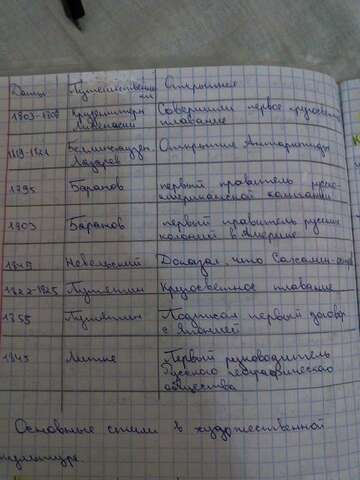 Даты Путешественники Открытия
1803-1806 Крузенштерн Лисянский Совершили первое русское плавание
1819-1821 Беллинсгаузен Лазарев Открытие Антарктиды
1795 Баранов первый правитель русско-американской компании
1803 Баранов первый правитель русских колоний в Америке
Невельский Доказал, что Сахалин-остров
1822-1825 Путятин Кругосветное плавание
1855 Путятин Подписал первый договор с Японией
1845 Литке Первый руководитель Русского географического общества
Основные стили в художественной
культуре.